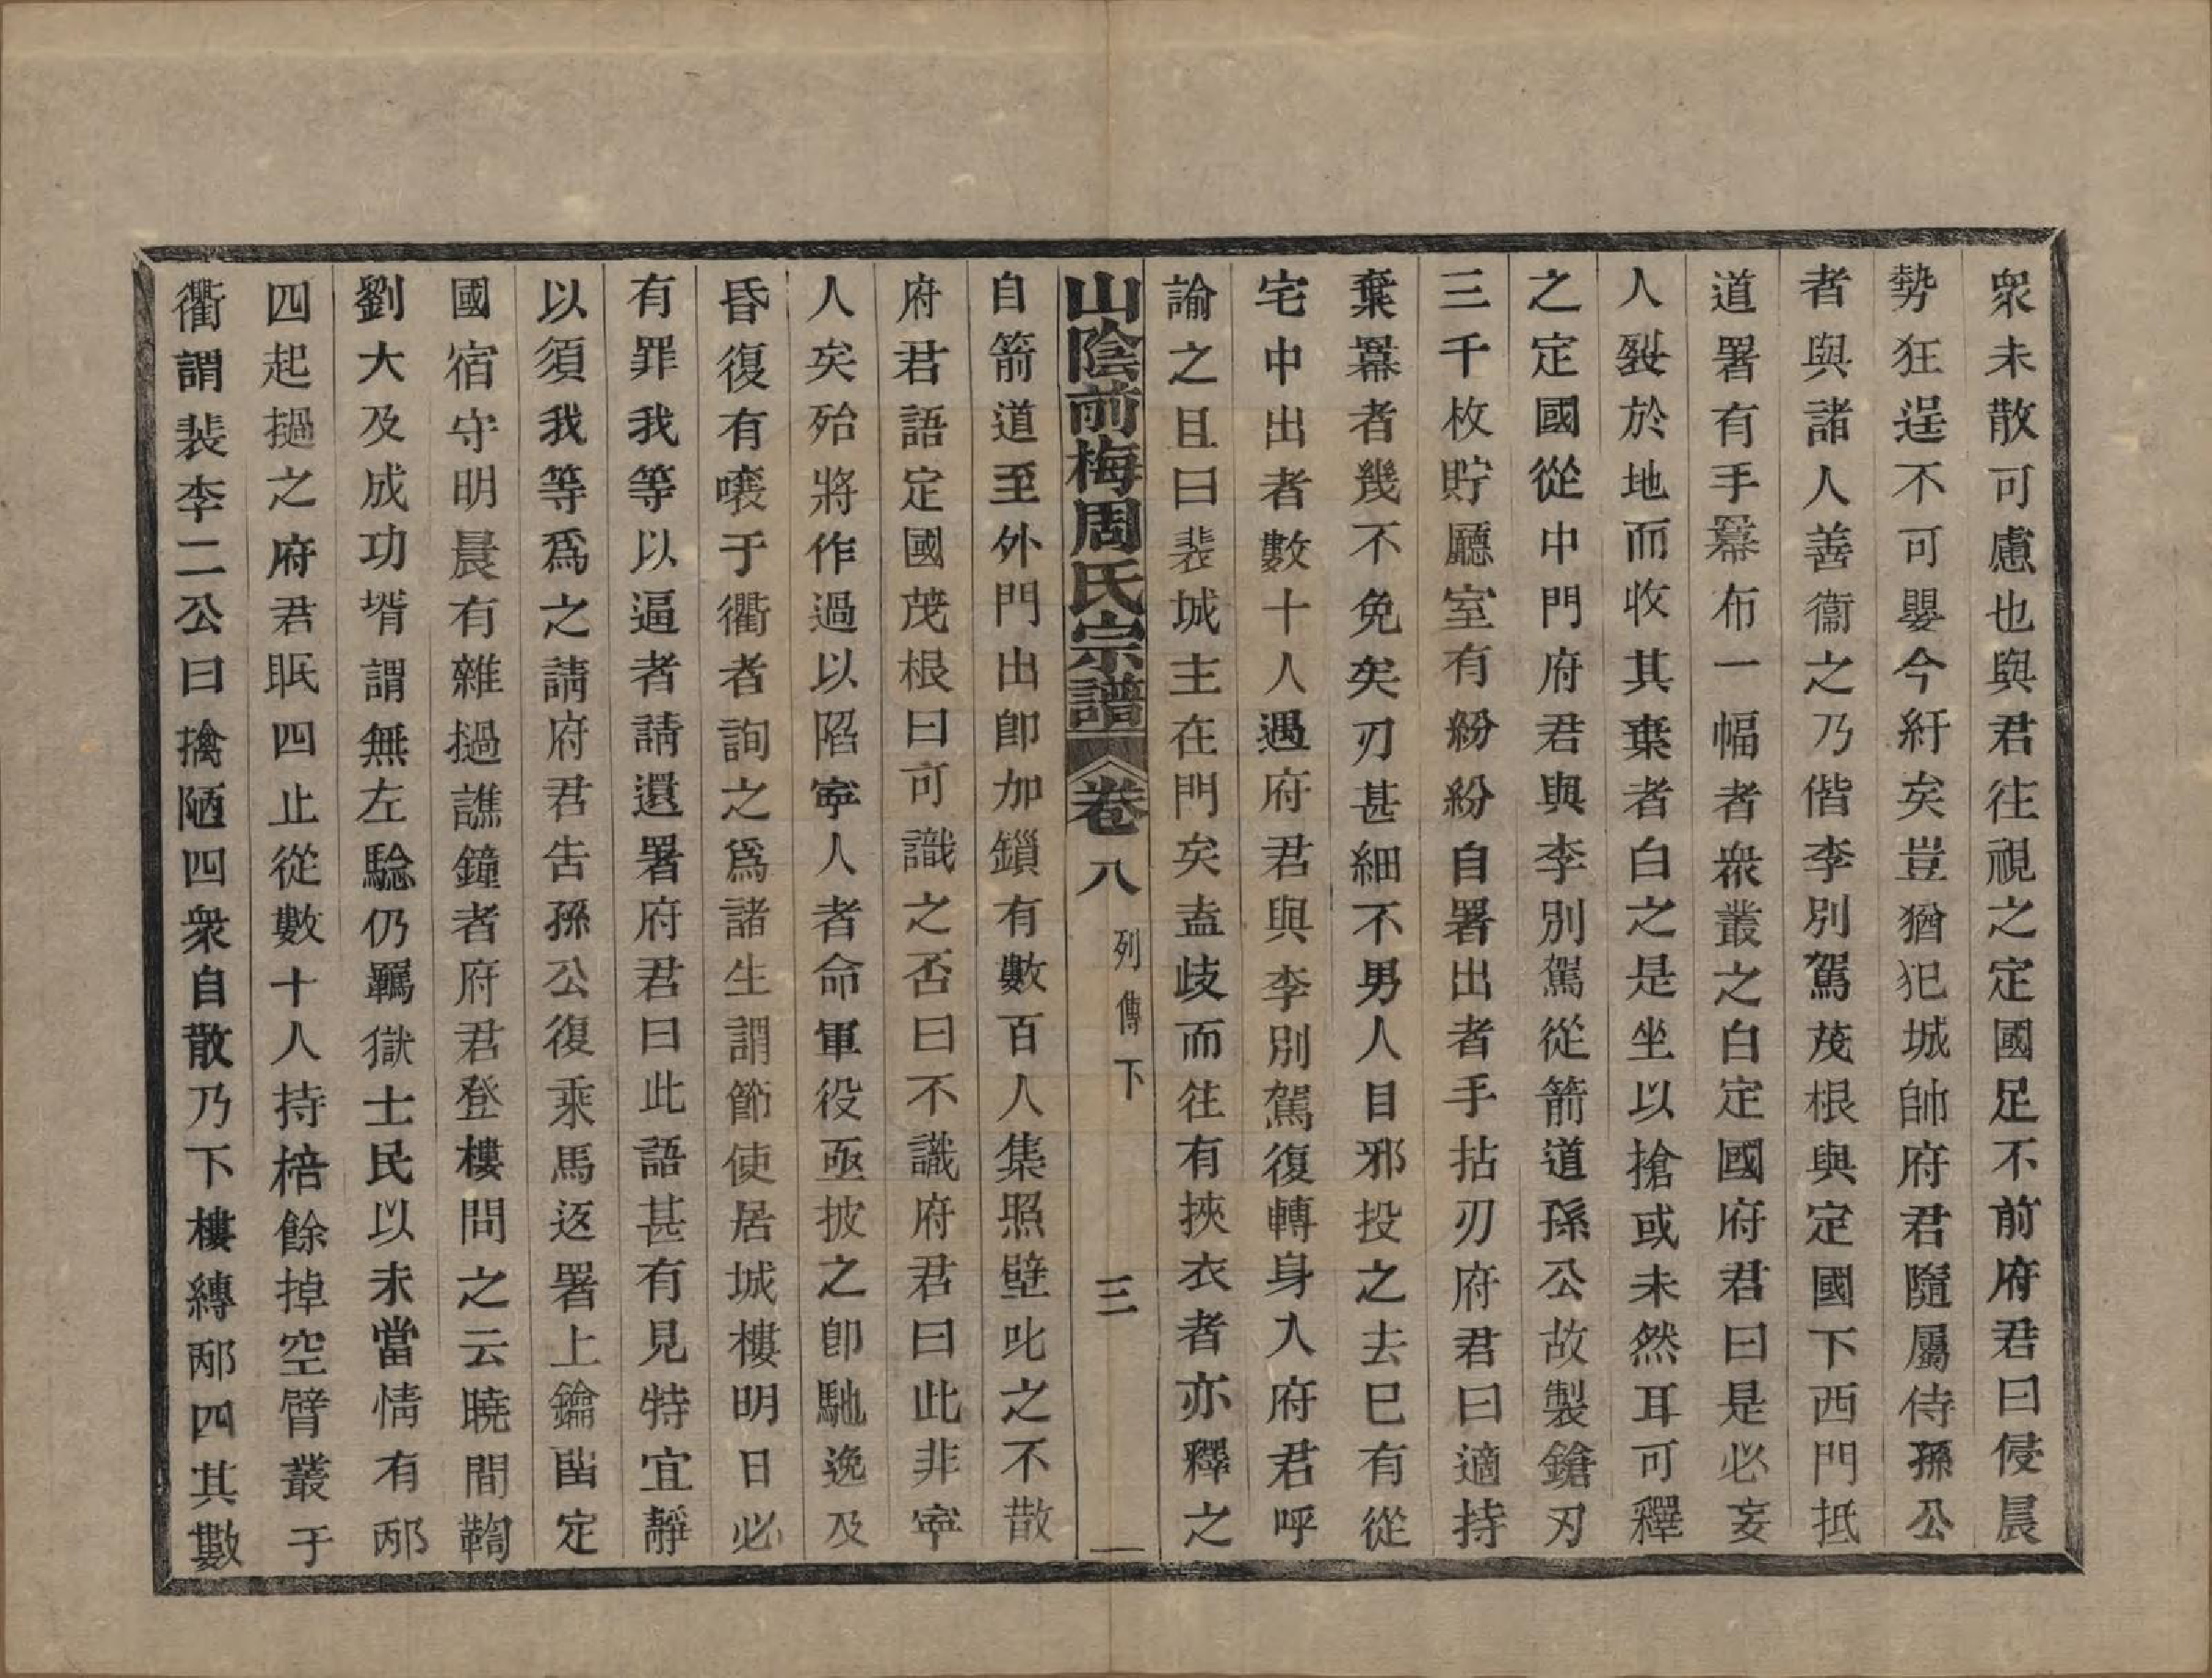 衆未散可慮也與君往視之定國足不前府君曰侵晨
勢狂逞不可嬰今紆矣豈猶犯城帥府君隨屬侍孫公
者與諸人善衞之乃偕李別駕茂根與定國下西門抵
道署有手羃布一幅者衆叢之白定國府君曰是必妄
人裂於地而收其棄者白之是坐以搶或未然耳可釋
之定國從中門府君與李別駕從箭道孫公故製鎗刃
三千枚貯廳室有紛紛自署出者手拈刃府君曰適持
棄羃者幾不免矣刃甚細不男人目邪投之去巳有從
宅中出者數十人遇府君與李別駕復轉身入府君呼
諭之且曰裴城主在門矣盍歧而往有挾衣者亦釋之
山陰前梅周氏宗譜 卷八 列傳下 三
自箭道至外門出卽加鎻有數百人集照壁叱之不散
府君語定國茂根曰可識之否曰不識府君曰此非寧
人矣殆將作過以陷寧人者命軍役亟披之卽馳逸及
昏復有嚷于衢者詢之爲諸生謂節使居城樓明日必
有罪我等以逼者請還署府君曰此語甚有見特宜靜
以須我等爲之請府君告孫公復乘馬返署上鑰畱定
國宿守明晨有雜撾譙鐘者府君登樓問之云曉間鞫
劉大及成功壻謂無左驗仍羈獄士民以未當情有邴
四起撾之府君眂四止從數十人持棓餘掉空臂叢于
衢謂裴李二公曰擒陋四衆自散乃下樓縳邴四其數